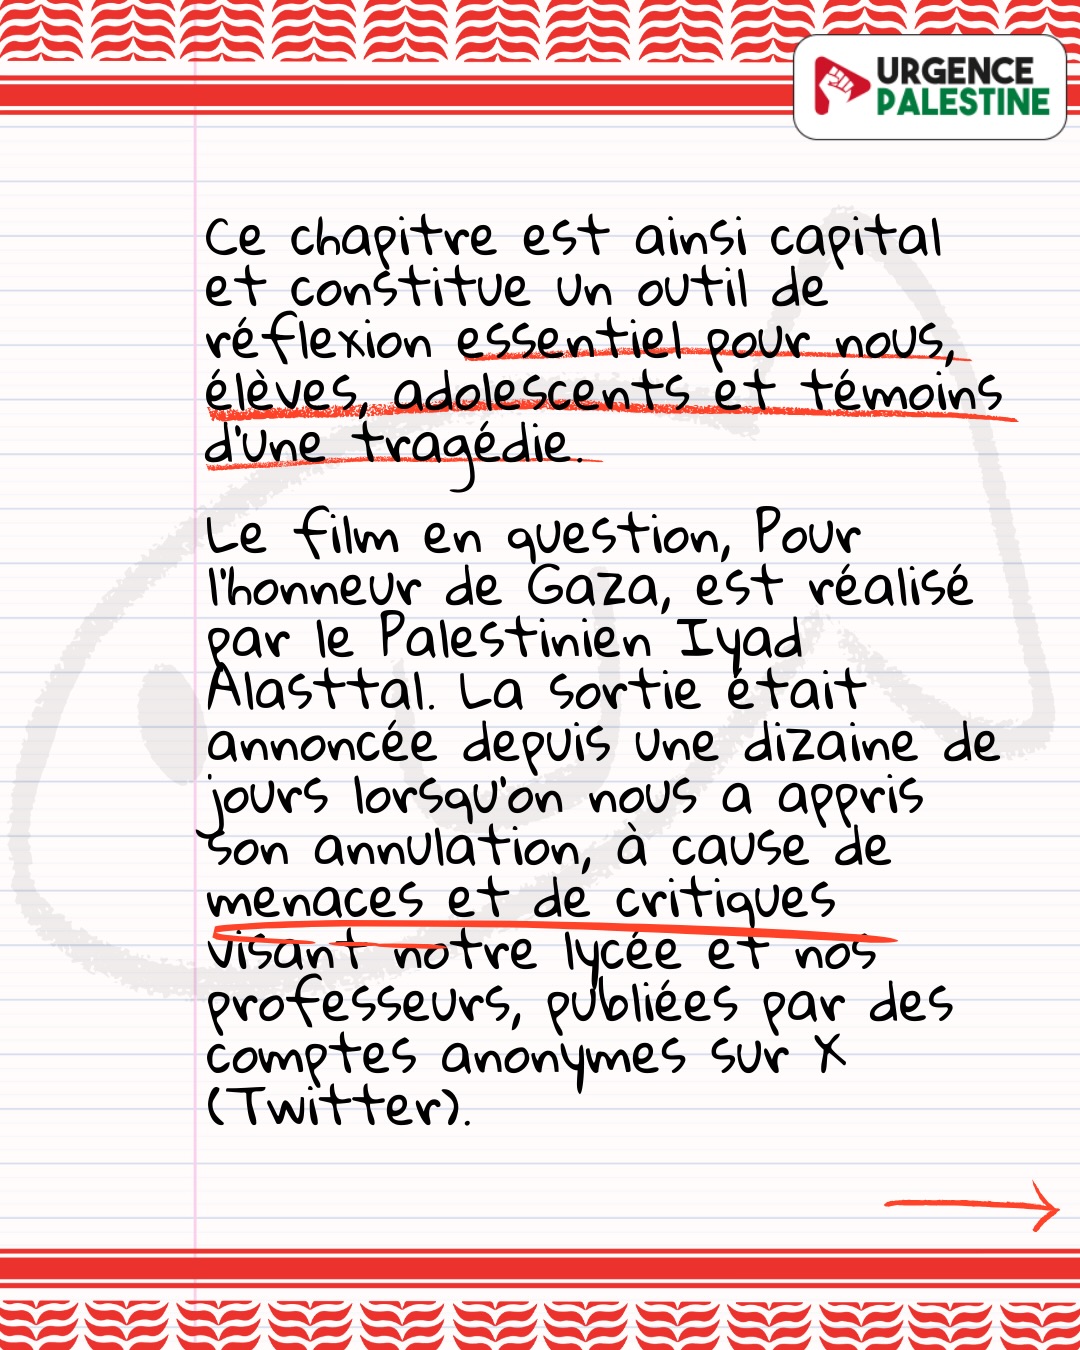 URGENCE
PALESTINE
Ce chapitre est ainsi capital
et constitue un outil de
réflexion essentiel pour nous,
élèves, adolescents et témoins
d'une tragédie.
Le film en question, Pour
l'honneur de Gaza, est réalisé
par le Palestinien Iyad
Alasttal. La sortie était
annoncée depuis une dizaine de
jours lorsqu'on nous a appris
son annulation, à cause de
menaces et de critiques
visant notre lycée et nos
professeurs, publiées par des
comptes anonymes sur X
(Twitter).